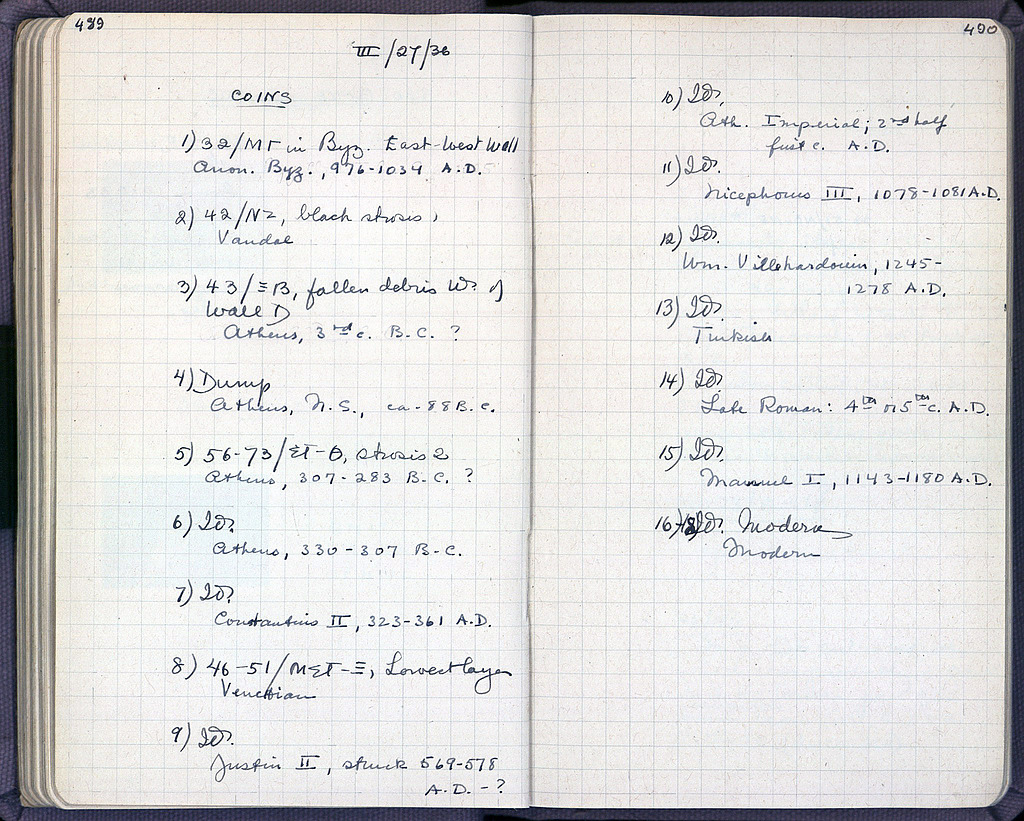 489
III/27/36
COINS
1) 32/ΜΓ in Byz. East-West Wall
Anon. Byz., 976-1034 A.D.
2) 42/ΝΖ, black strosis,
Vandal
3) 43/ΞΒ, fallen debris W. of
Wall D
Athens, 3rd c. B.C. ?
4) Dump
Athens, N.S., ca. 88 B.C.
5) 56-73/ΞΓ-Θ, strosis 2
Athens, 307-283 B.C. ?
6) Id.
Athens, 330-307 B.C.
7) Id.
Constantius II, 323-361 A.D.
8) 46-51/ -Ξ, Lowest layer
Venetian
9) Id.
Justin II, struck 569-578
A.D. - ?
490
10) Id.
Ath. Imperial; 2nd half
first c. A.D.
11) Id.
Nicephorus III, 1078-1081 A.D.
12) Id.
Wm. Villehardouin, 1245-
1278 A.D.
13) Id.
Turkish
14) Id.
Late Roman: 4th or 5th c. A.D.
15) Id.
Manuel I, 1143-1180 A.D.
16)-18) Id. Modern
Modern